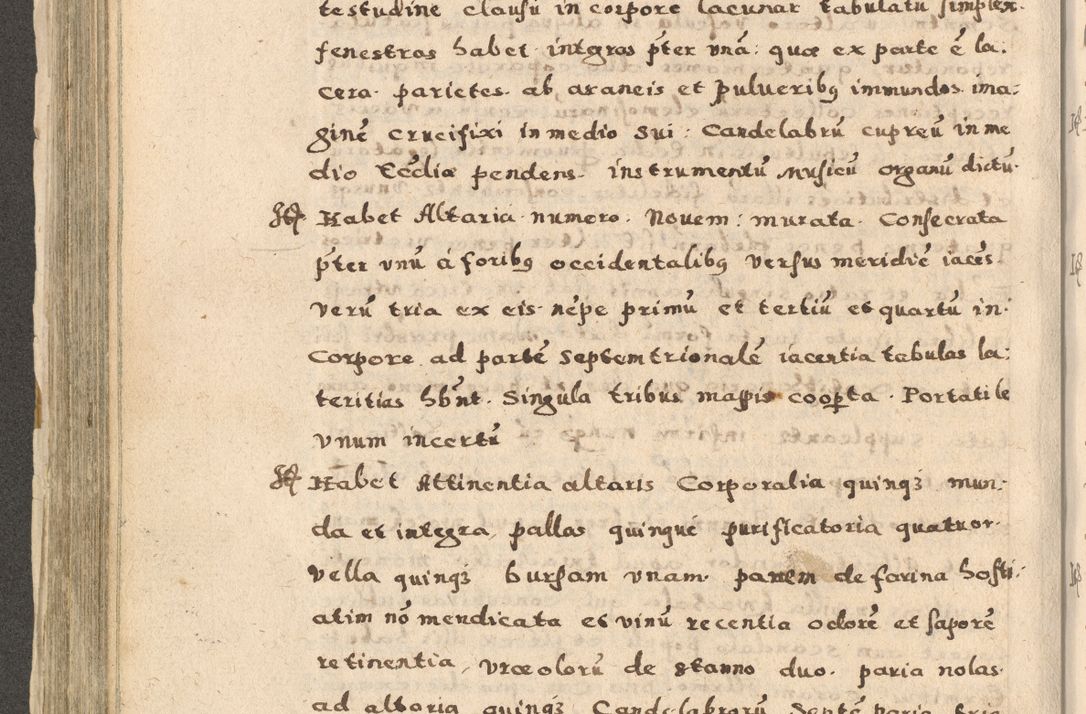 testudine clausū in corpore lacunar tabulatū simplex.
fenestras habet integras p̄ter vnā: quæ ex parte ē la:
cera. parietes ab araneis et pulueribꝯ immundos ima:
ginē crucifixi in medio sui: Candelabrū cupreū in me
dio Ecclīæ pendens. instrumentū musicū organū dictū.
It Habet Altaria numero. Nouem: murata. Consecrata
p̄ter vnū á foribꝯ occidentalibꝯ versus meridiē iacēs
verū tria ex eis nēpe primū et tertiū et quartū in:
Corpore ad partē Septemtrionalē iacentia tabulas la:
teritias hb̄nt. Singula tribus mappis cooꝑta. Portatile
vnum incertū
It Habet Attinentia altaris Corporalia quinqꝫ mun:
da et integra, pallas quinque purificatoria quatuor.
vella quinqꝫ bursam vnam. panem de farina hosti:
atim nō mendicata et vinū recentia odorē et saporē
retinentia, vrceolorū de stanno duo. paria nolas.
ad altaria quinqꝫ Candelabrorū Septē paria tria